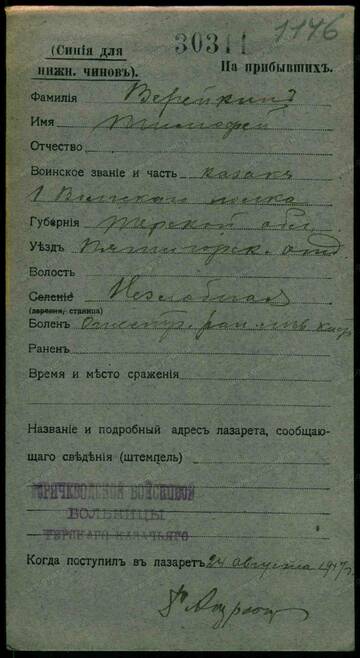 1146
(Синія для
нижн. чиновъ).
30311
На прибывшихъ.
Фамилія Верейкинъ
Имя Тимофей
Отчество
Воинское званіе и часть казакъ
1 Волгскаго полка
Губернія Терской обл
Уѣздъ Пятигорск. отд
Волость
Селеніе Незлобная
(деревня, станица)
Боленъ Огнестр. ран. лѣв.
Раненъ
Время и мѣсто сраженія
Названіе и подробный адресъ лазарета, сообщаю-
щаго свѣдѣнія (штемпель)
ГОРЯЧЕВОДСКОЙ ВОЙСКОВОЙ
БОЛЬНИЦЫ
ТЕРСКАГО КАЗАЧЬЯГО
Когда поступилъ въ лазаретъ 24 августа 1917 г.